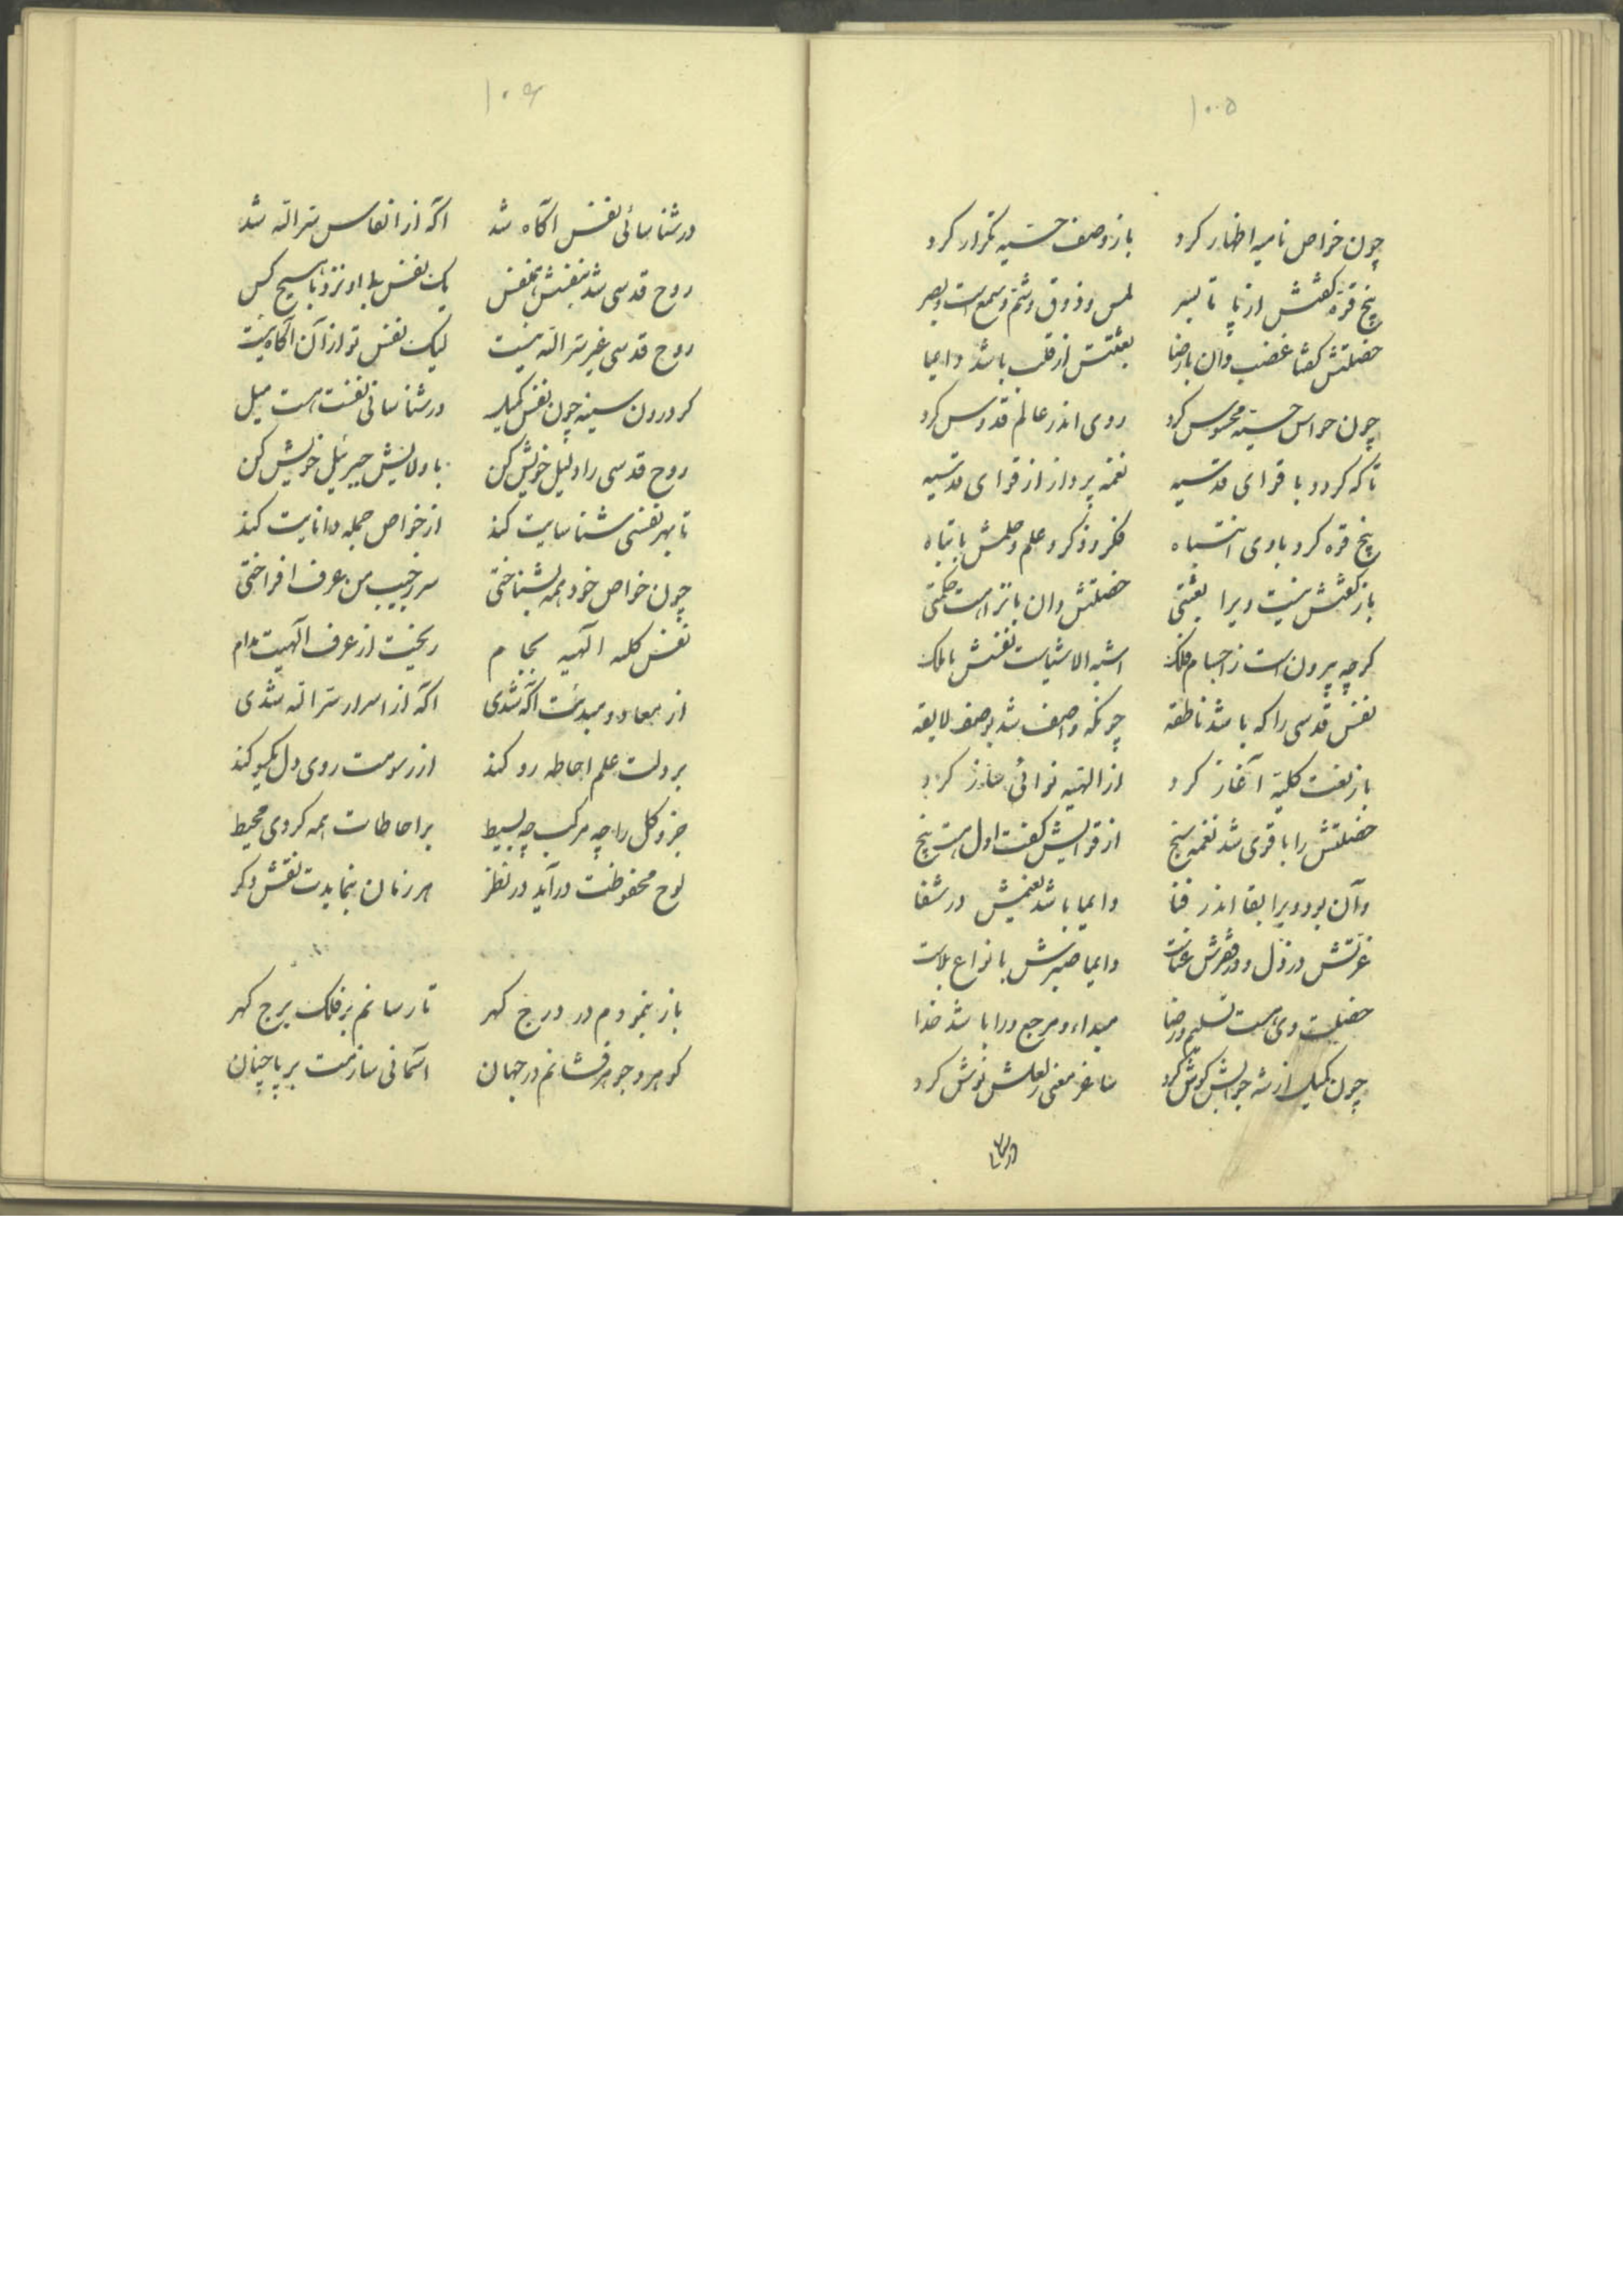 ۱۰۵
چون خواص نامیه اظهار کرد باز وصف حسیه تکرار کرد
پنج قوه کفتش از پا تا بسر لمس و ذوق و شم و سمع است و بصر
خصلتش کفتا غضب دان با رضا بعثتش از قلب باشد دایما
چون حواس حسیه محسوس کرد روی اندر عالم قدوس کرد
تا که کردد با قوای قدسیه نغمه پرداز از قوای قدسیه
پنج قوه کرد با وی انتباه فکر و ذکر و علم و حلمش با نباه
باز کفتش نیست ویرا بعثتی خصلتش دان با نزاهت حکمتی
کرچه بیرون است ز اجسام فلک اشبه الاشیاست نفسش با ملک
نفس قدسی را که باشد ناطقه چونکه واصف شد بوصف لایقه
باز نعت کلیه آغاز کرد از الهیه نوائی ساز کرد
خصلتش را با قوی شد نغمه سنج از قوایش کفت اول هست پنج
وآن بود ویرا بقا اندر فنا دایما باشد نعیمش در شقا
عزتش در ذل و در فقرش غناست دایما صبرش بانواع بلاست
خصلت وی هست تسلیم و رضا مبداء و مرجع ورا باشد خدا
چون کمیل از شه جوابش کوش کرد ساغر معنی ز لعلش نوش کرد
در شنا
۱۰۶
در شناسائی نفس اکاه شد اکه از انفاس سر اله شد
روح قدسی شد بنفسش همنفس یک نفس بی او نزد با هیچ کس
روح قدسی غیر سر اله نیست لیک نفس تو از آن اکاه نیست
کر درون سینه چون نفس کمیل در شناسائی نفست هست میل
روح قدسی را دلیل خویش کن با ولایش جبرئیل خویش کن
تا بهر نفسی شناسایت کند از خواص جمله دانایت کند
چون خواص خود همه بشناختی سر ز جیب من عرف افراختی
نفس کلیه الهیه بجام ریخت از عرف الهیت مدام
از معاد و مبدئت اکه شدی اکه از اسرار سر اله شدی
بر دلت علم احاطه رو کند از رسومت روی دل یکسو کند
جزو کل را چه مرکب چه بسیط بر احاطات همه کردی محیط
لوح محفوظت درآید در نظر هر زمان بنمایدت نقش دکر
باز بنمودم در درج کهر تا رسانم بر فلک برج کهر
کوهر و جوهر فشانم در جهان آسمانی سازمت بر پا چنان